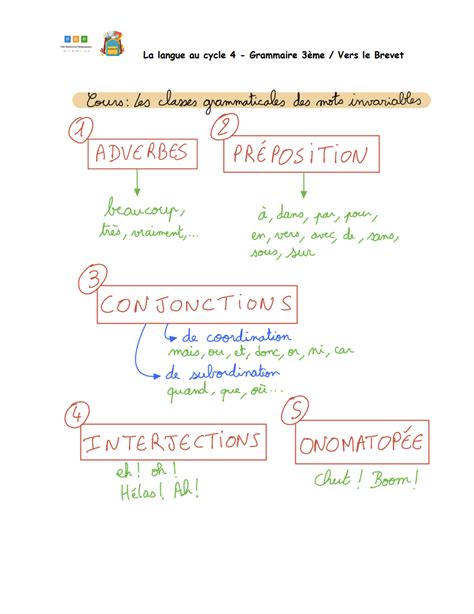 La langue au cycle 4 - Grammaire 3ème / Vers le Brevet
Cours : Les classes grammaticales des mots invariables
1
ADVERBES
beaucoup,
très, vraiment,...
2
PRÉPOSITION
à, dans, par, pour,
en, vers, avec, de, sans,
sous, sur
3
CONJONCTIONS
de coordination
mais, ou, et, donc, or, ni, car
de subordination
quand, que, où...
4
INTERJECTIONS
eh! oh!
Hélas! Ah!
5
ONOMATOPÉE
Chut! Boom!